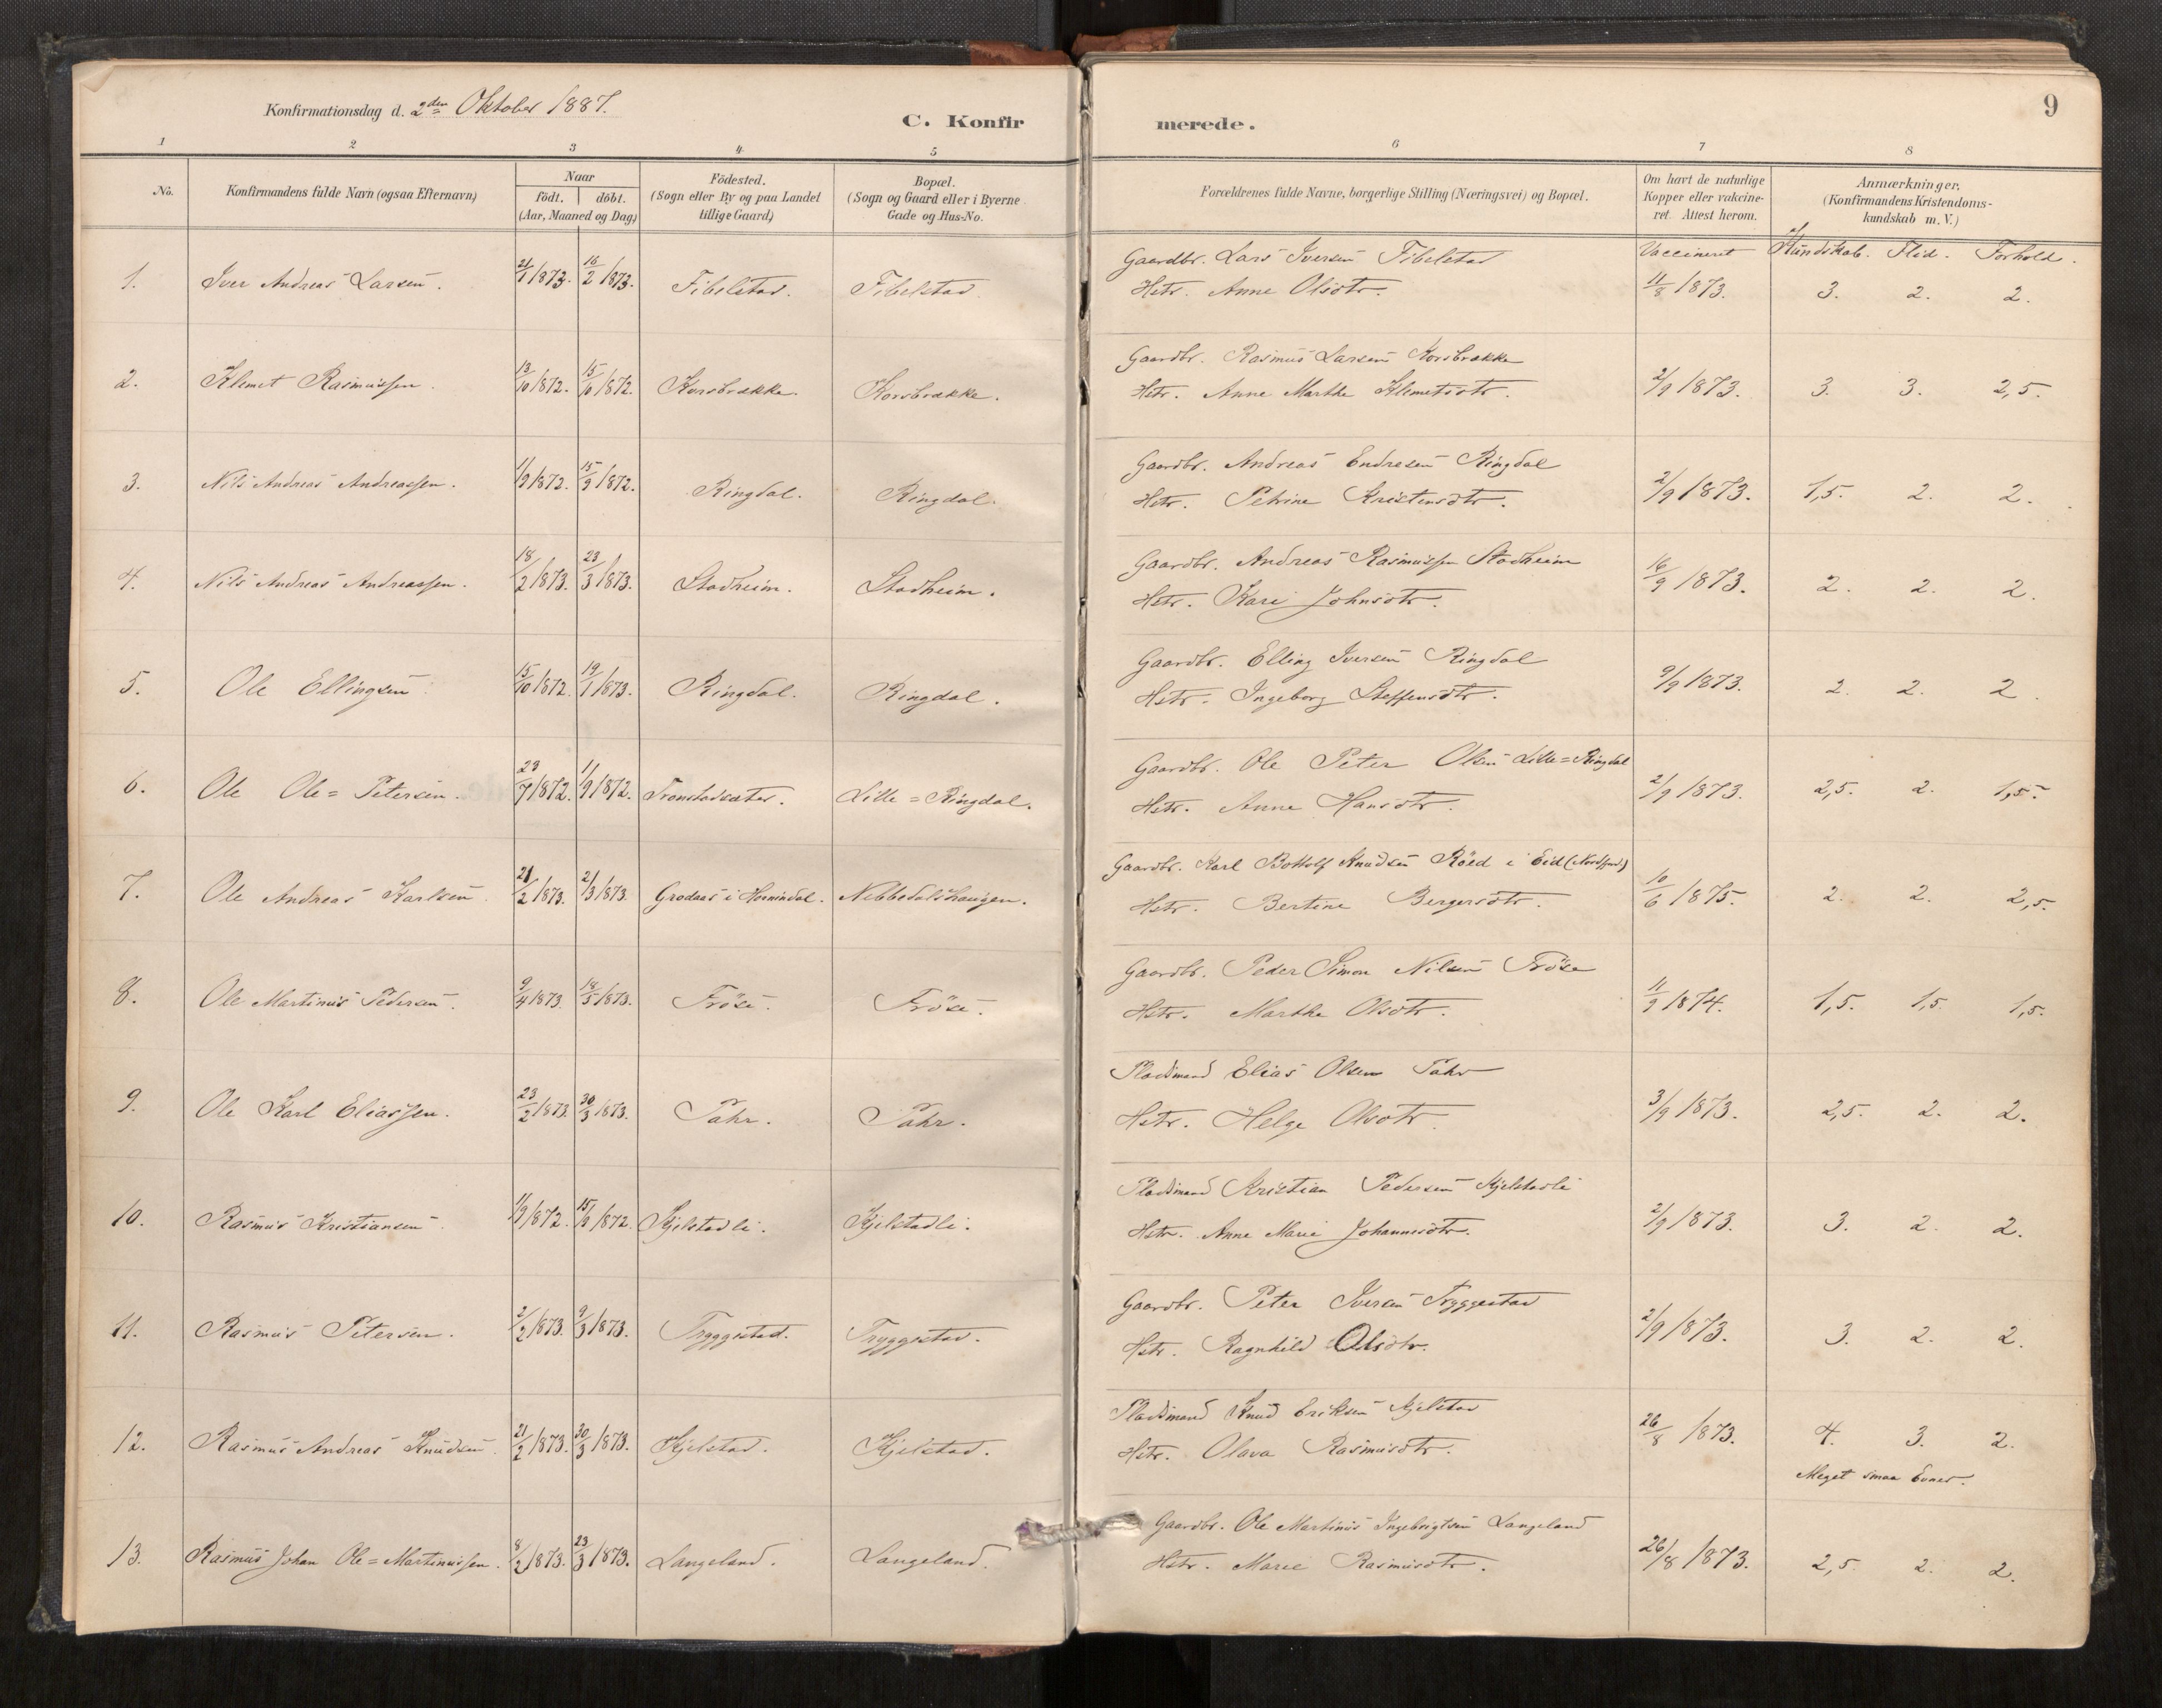 Konfirmationsdag d. 2den Oktober 1887.
C. Konfirmerede.
9
1 2 3 4 5 6 7 8
No. Konfirmandens fulde Navn (ogsaa Efternavn) Naar födt. döbt. (Aar, Maaned og Dag) Födested. (Sogn eller By og paa Landet tillige Gaard) Bopæl. (Sogn og Gaard eller i Byerne Gade og Hus-No. Forældrenes fulde Navne, borgerlige Stilling (Næringsvei) og Bopæl. Om havt de naturlige Kopper eller vakcineret. Attest herom. Anmærkninger. (Konfirmandens Kristendomskundskab m. V.)
Vaccineret Kundskab. Flid. Forhold.
1. Iver Andreas Larsen. 21/1 1873. 16/2 1873. Fibelstad. Fibelstad. Gaardbr. Lars Iversen Fibelstad
Hstr. Anne Olsdtr. 11/8 1873. 3. 2. 2.
2. Klemet Rasmussen. 13/10 1872. 15/10 1872. Korsbrække. Korsbrække. Gaardbr. Rasmus Larsen Korsbrække
Hstr. Anne Marthe Klemetsdtr. 2/9 1873. 3. 3. 2,5.
3. Nils Andreas Andreassen. 1/9 1872. 15/9 1872. Ringdal. Ringdal. Gaardbr. Andreas Endresen Ringdal
Hstr. Petrine Kristensdtr. 2/9 1873. 1,5. 2. 2.
4. Nils Andreas Andreassen. 18/2 1873. 23/3 1873. Stadheim. Stadheim. Gaardbr. Andreas Rasmussen Stadheim
Hstr. Kari Johnsdtr. 16/9 1873. 2. 2. 2.
5. Ole Ellingsen. 15/10 1872. 19/1 1873. Ringdal. Ringdal. Gaardbr. Elling Iversen Ringdal
Hstr. Ingeborg Steffensdtr. 9/9 1873. 2. 2. 2.
6. Ole Ole=Petersen. 23/7 1872. 1/9 1872. Tronstadsæter. Lille=Ringdal. Gaardbr. Ole Peter Olsen Lille=Ringdal
Hstr. Anne Hansdtr. 2/9 1873. 2,5. 2. 1,5.
7. Ole Andreas Karlsen. 21/2 1873. 2/3 1873. Grodaas i Hornindal. Nebbedalshaugen. Gaardbr. Karl Bottolf Knudsen Röed i Eid (Nordfjord)
Hstr. Bertine Bergersdtr. 10/6 1875. 2. 2. 2,5.
8. Ole Martinus Pedersen. 9/4 1873. 18/5 1873. Fröse. Fröse. Gaardbr. Peder Simon Nilsen Fröse
Hstr. Marthe Olsdtr. 11/9 1874. 1,5. 1,5. 1,5.
9. Ole Karl Eliassen. 23/2 1873. 30/3 1873. Pahr. Pahr. Pladsmand Elias Olsen Pahr
Hstr. Helge Olsdtr. 3/9 1873. 2,5. 2. 2.
10. Rasmus Kristiansen. 1/9 1872. 15/9 1872. Kjelstadli. Kjelstadli. Pladsmand Kristian Pedersen Kjelstadli
Hstr. Anne Marie Johannesdtr. 2/9 1873. 3. 2. 2.
11. Rasmus Petersen. 2/2 1873. 9/3 1873. Tryggestad. Tryggestad. Gaardbr. Peter Iversen Tryggestad
Hstr. Ragnhild Olsdtr. 2/9 1873. 3. 2. 2.
12. Rasmus Andreas Knudsen. 21/2 1873. 30/3 1873. Kjelstad. Kjelstad. Pladsmand Knud Eriksen Kjelstad
Hstr. Olava Rasmusdtr. 26/8 1873. 4. 3. 2.
Meget smaa Evner.
13. Rasmus Johan Ole=Martinussen. 8/2 1873. 23/3 1873. Langeland. Langeland. Gaardbr. Ole Martinus Ingebrigtsen Langeland
Hstr. Marie Rasmusdtr. 26/8 1873. 2,5. 2. 2.